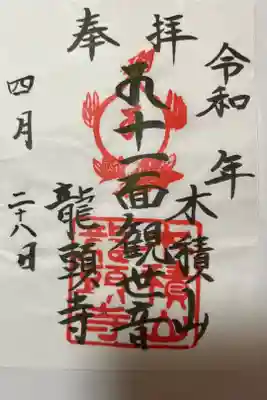 奉拝
令和 年
木積山
十一面観世音
龍頭寺
四月 二十八日